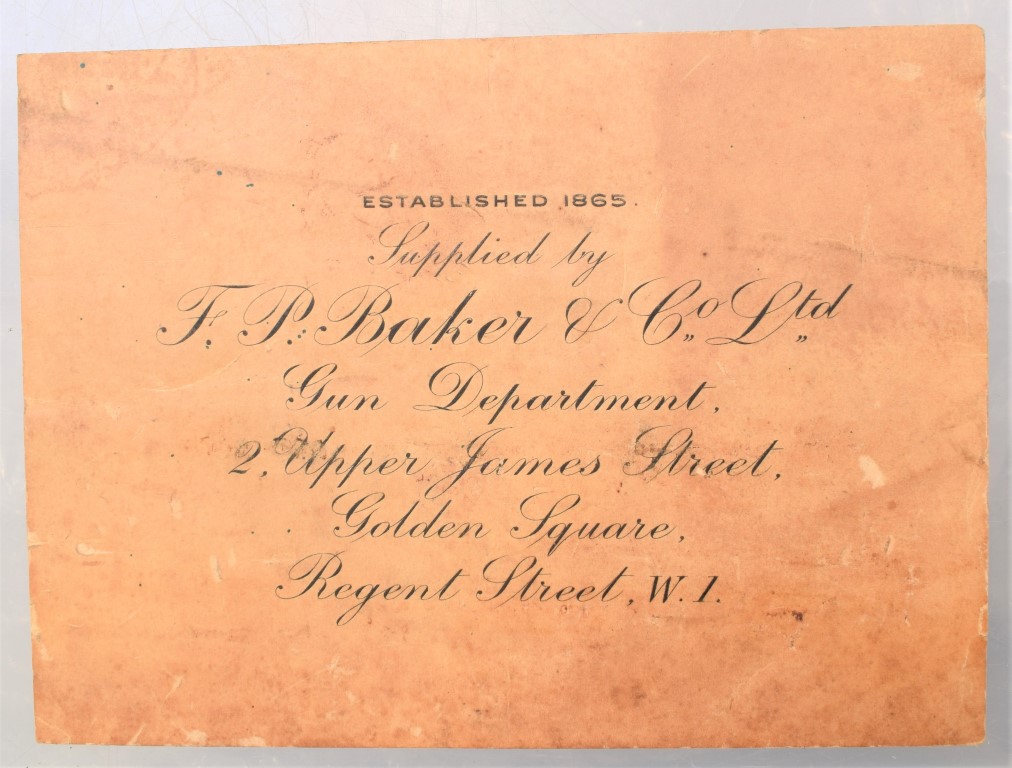 ESTABLISHED 1865.
Supplied by
F. P. Baker & Co. Ltd
Gun Department,
2, Upper James Street,
Golden Square,
Regent Street, W.1.